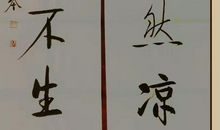 然凉
不生